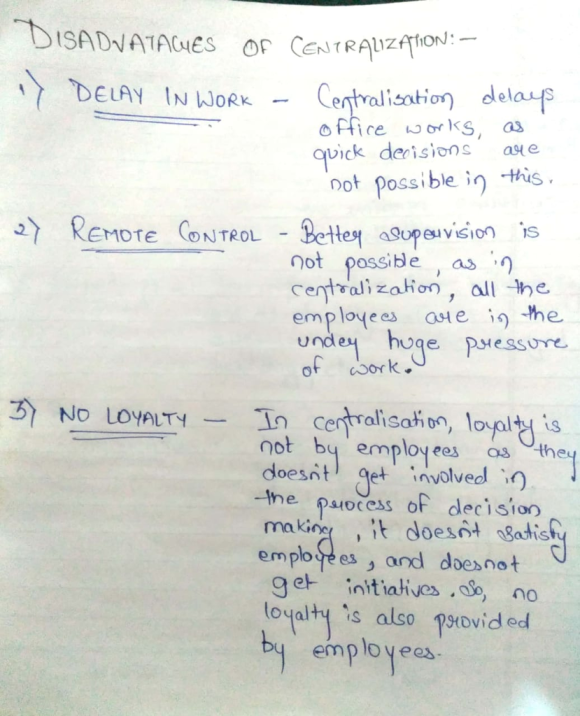 DISADVATAGES OF CENTRALIZATION:-
1) DELAY IN WORK - Centralisation delays
office works, as
quick decisions are
not possible in this.
2) REMOTE CONTROL - Better supervision is
not possible, as in
centralization, all the
employees are in the
under huge pressure
of work.
3) NO LOYALTY - In centralisation, loyalty is
not by employees as they
doesn't get involved in
the process of decision
making, it doesn't satisfy
employees, and doesnot
get initiatives. So, no
loyalty is also provided
by employees.